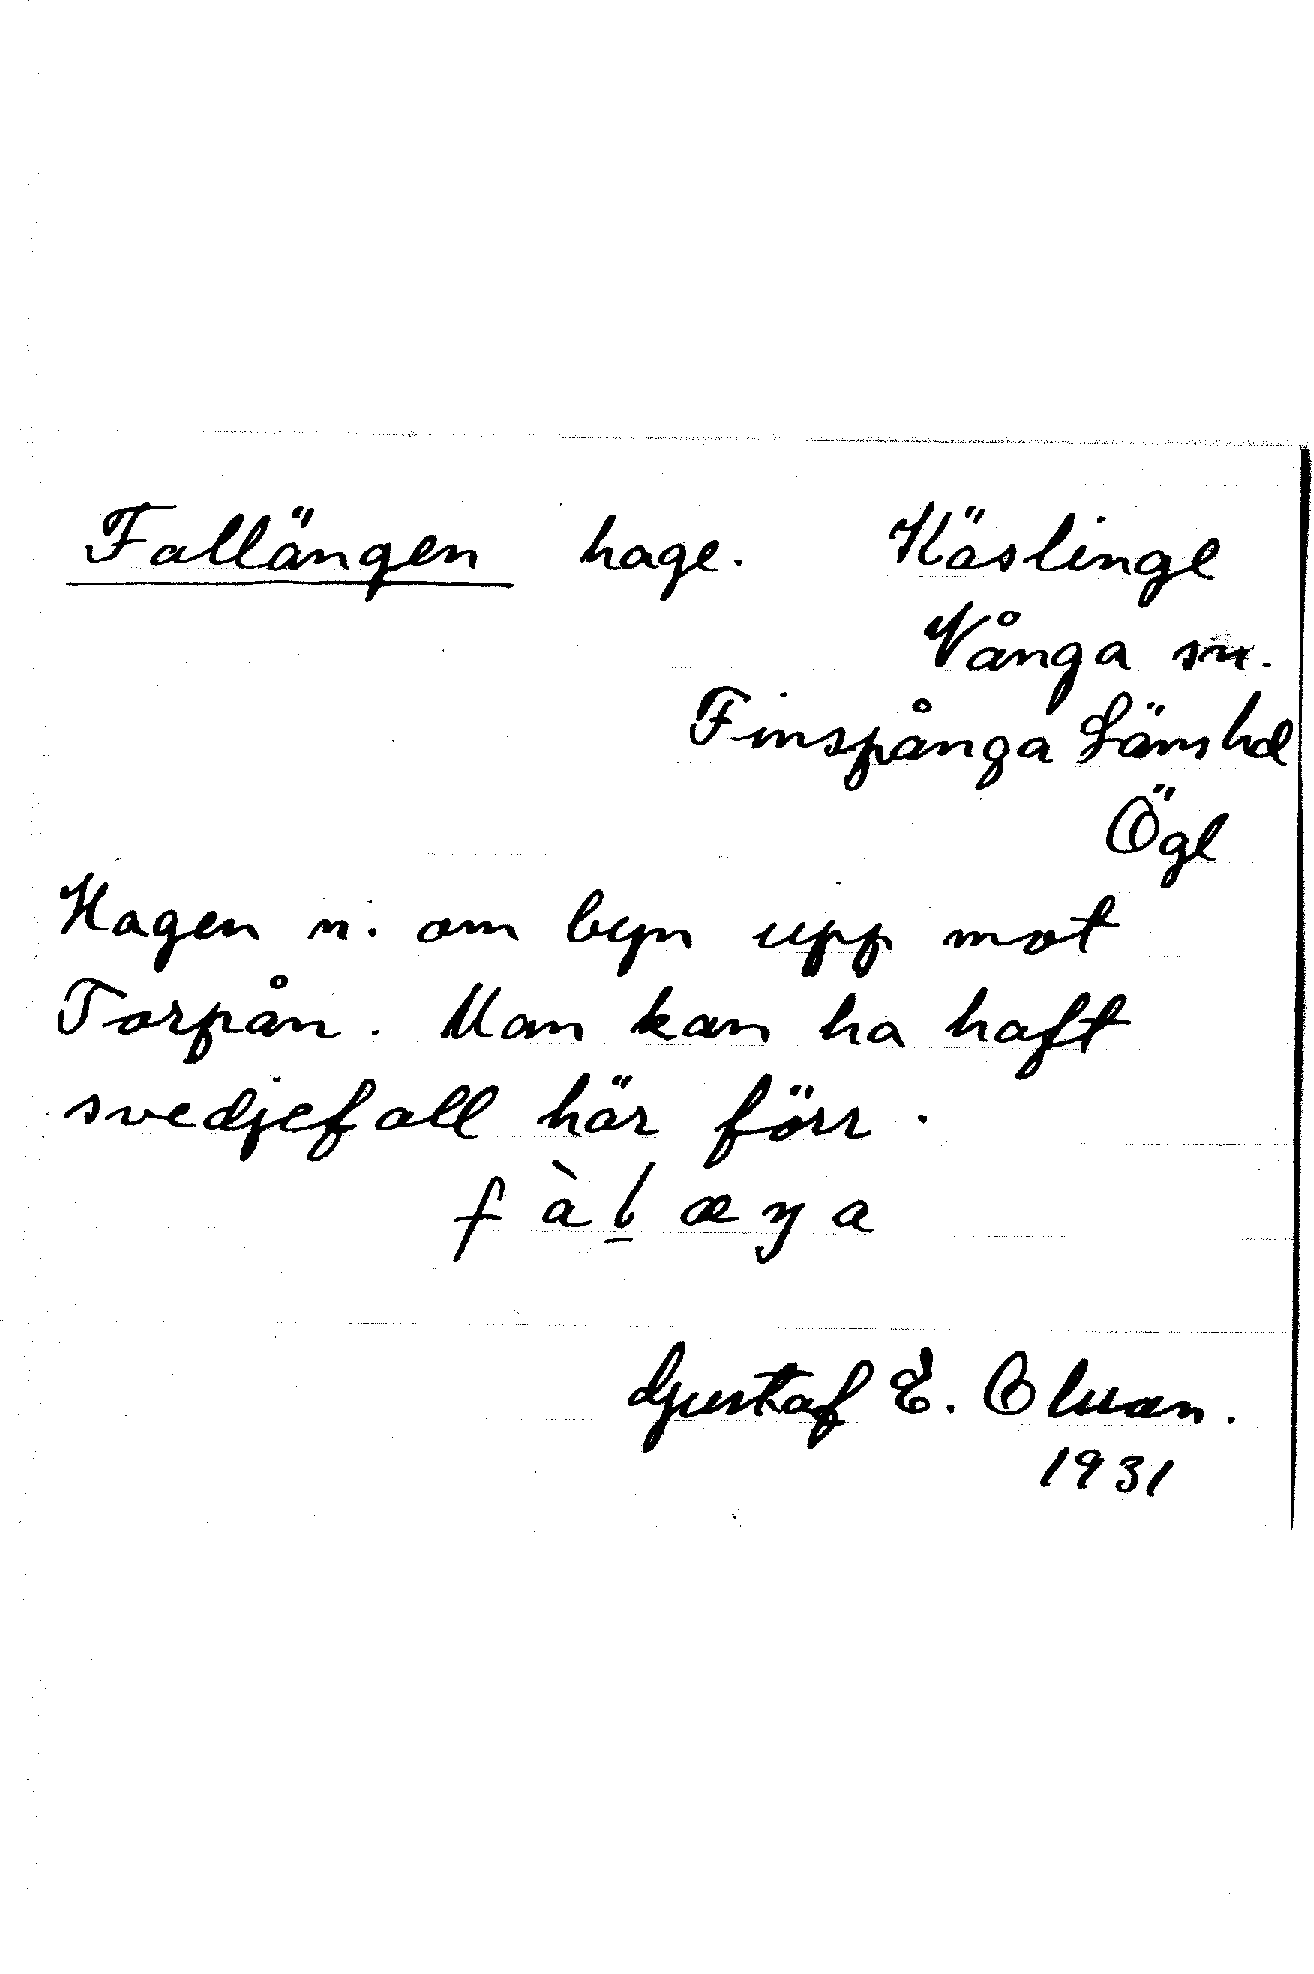 Fallängen hage. Käslinge
Vånga sn.
Finspånga Läns hd
Ögl
Hagen n. om byn upp mot
Torpån. Man kan ha haft
svedjefall här förr.
fàlæŋa
Gustaf E. Olsson.
1931